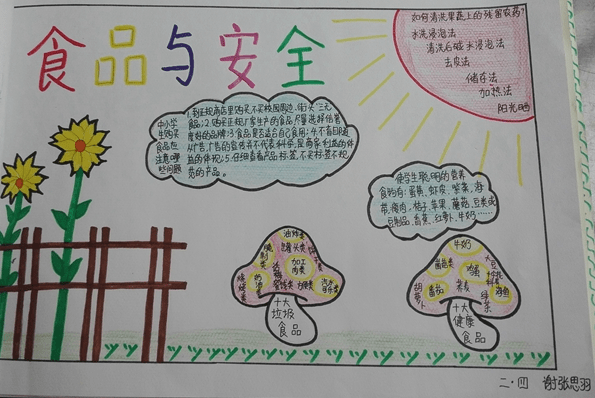 食品与安全
如何清洗果蔬上的残留农药?
水洗浸泡法
清洗后碱水浸泡法
去皮法
储存法
加热法
阳光晒
中小学
生购买
食品应
注意哪
些问题
1.到正规商店里购买,不买校园周边、街头"三无
食品;2.购买正规厂家生产的食品,尽量选择信誉
度好的品牌;3.食品是否适合自己食用;4.不盲目随
从广告,广告的宣传并不代表科学,是商家利益的体
5.仔细查看产品标签,不买标签不规
范的产品。
使学生聪明的营养
食物有:蛋黄、虾皮、紫菜、海
带、瘦肉、桔子、苹果、蘑菇、豆类或
豆制品、香蕉、红萝卜、牛奶……
油炸类
罐头类
加工
肉类
烧烤类
方便类
汽水
可乐类
十大
垃圾
食品
牛奶
菌菇类
鸡蛋
大豆
番茄
荞麦
绿茶
胡萝卜
十大
健康
食品
二·四 谢张思羽